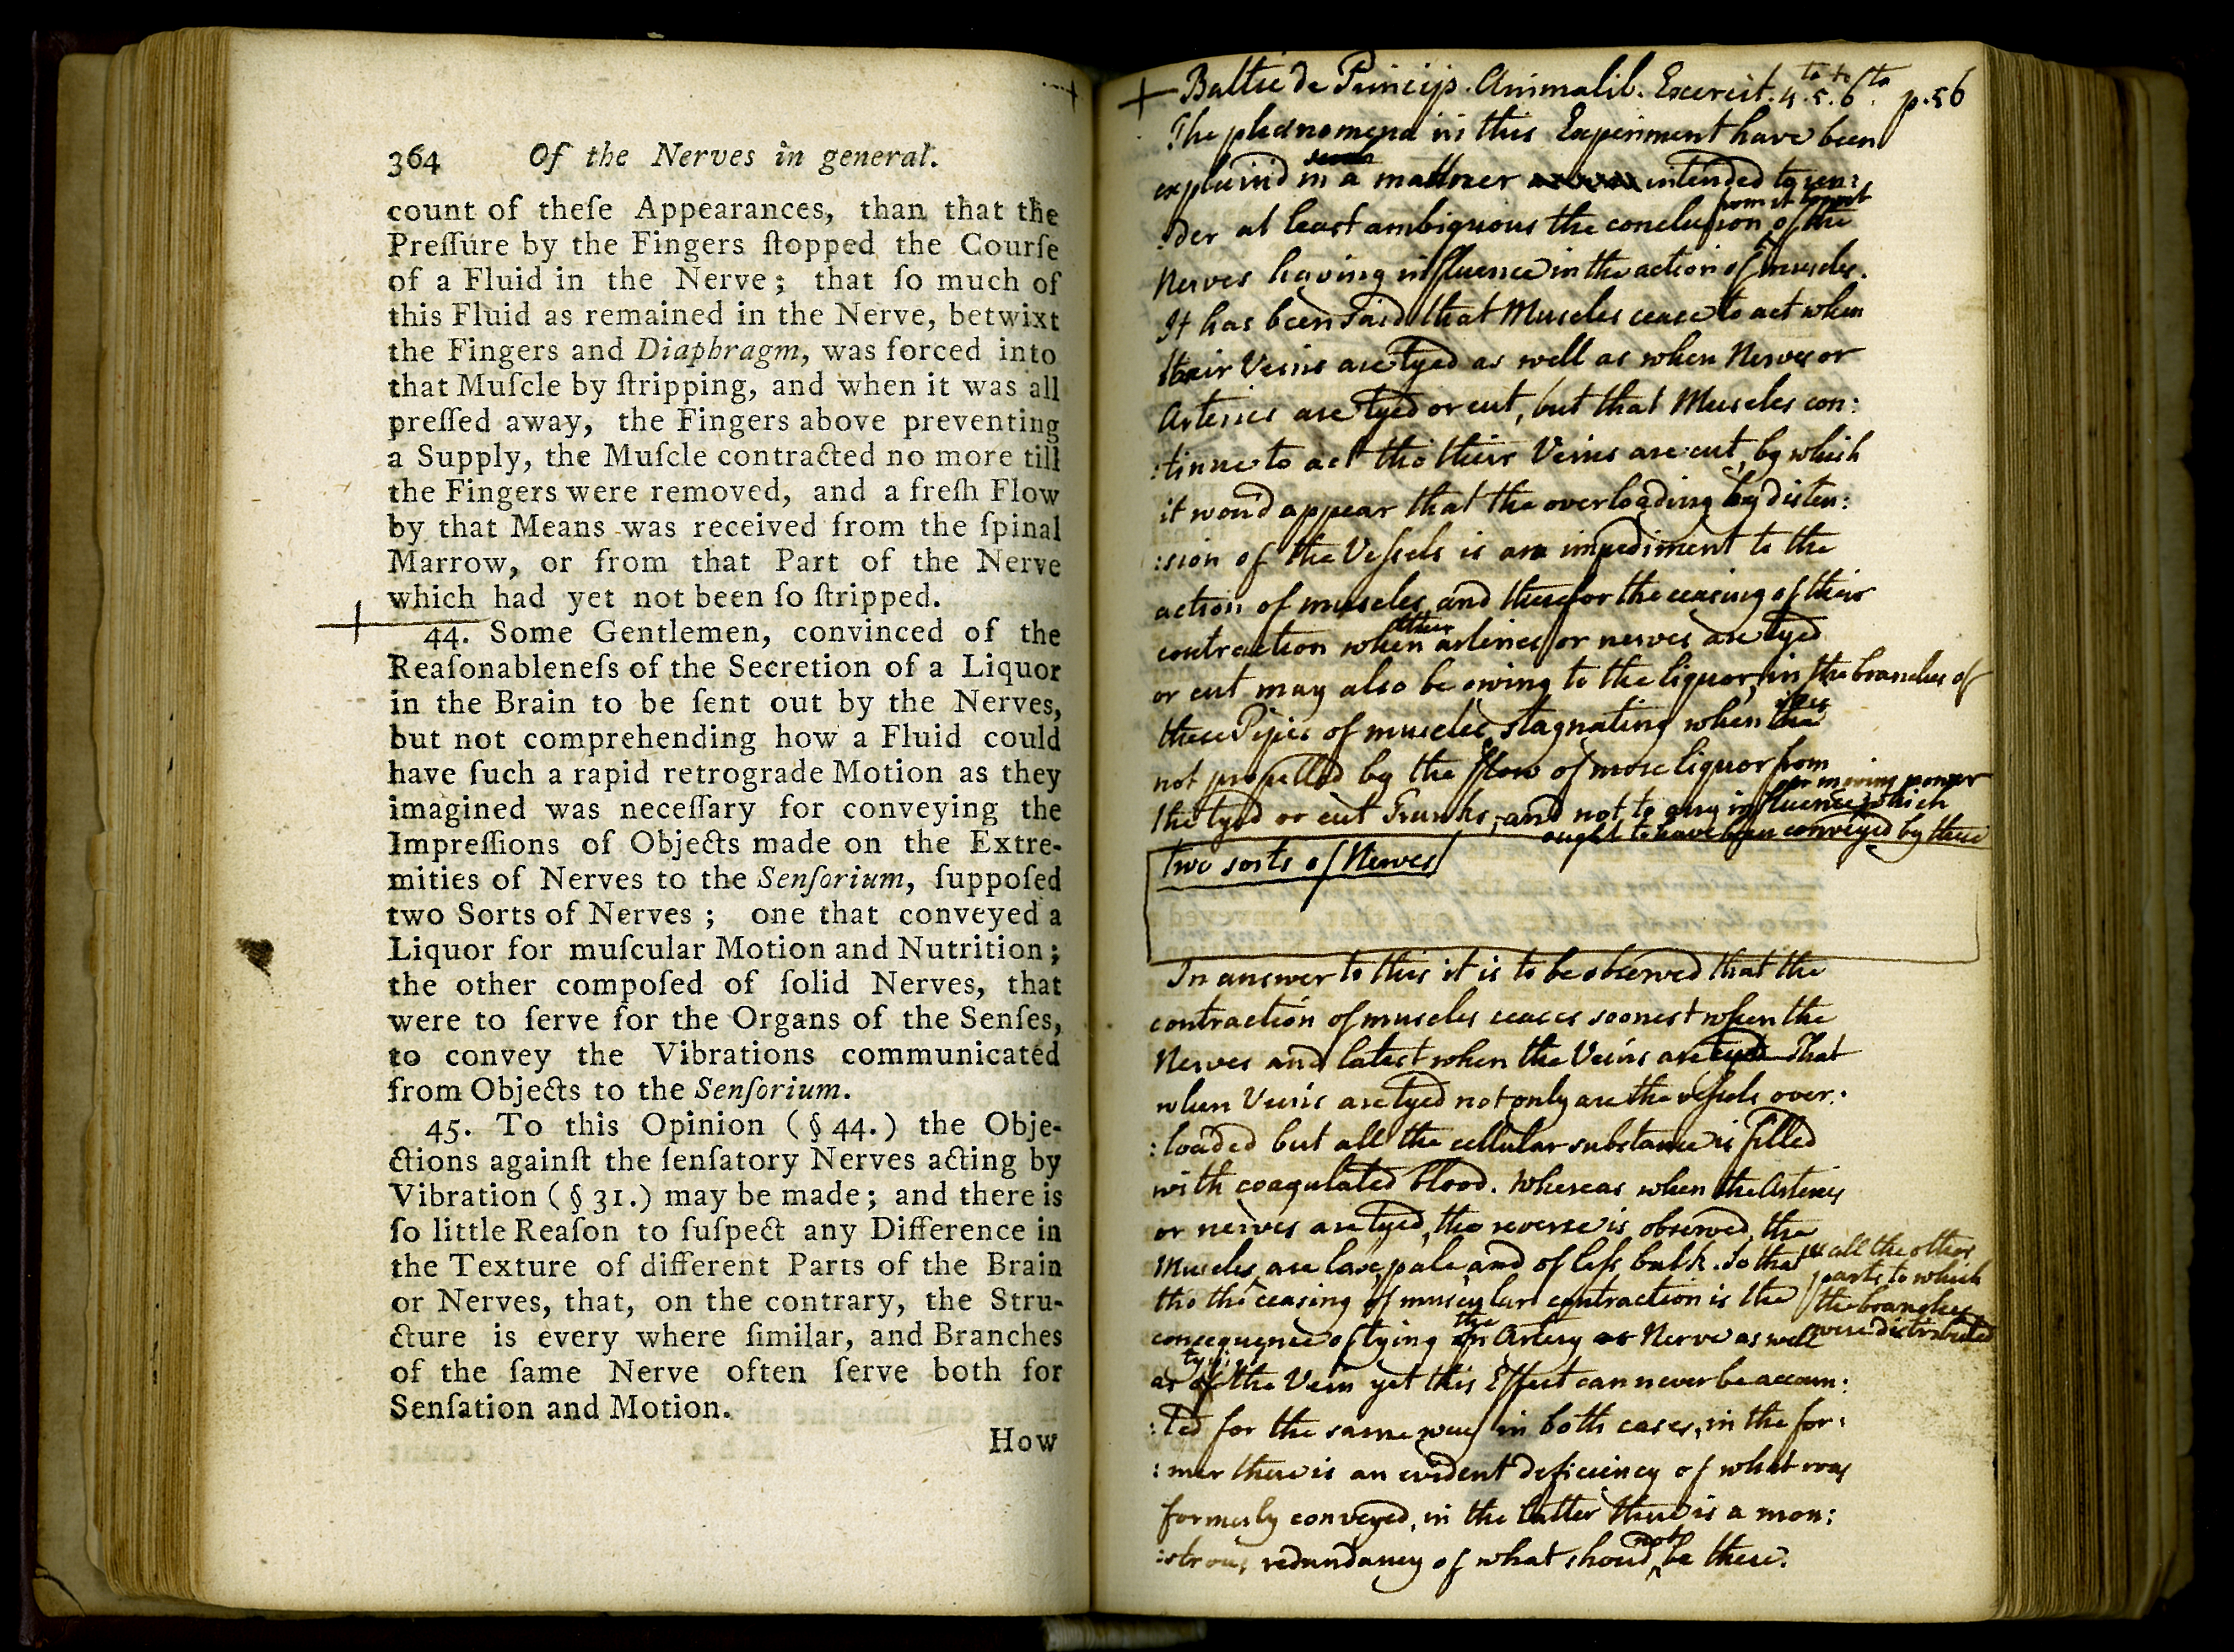 364 Of the Nerves in general.
count of theſe Appearances, than that the
Preſſure by the Fingers ſtopped the Courſe
of a Fluid in the Nerve; that ſo much of
this Fluid as remained in the Nerve, betwixt
the Fingers and Diaphragm, was forced into
that Muſcle by ſtripping, and when it was all
preſſed away, the Fingers above preventing
a Supply, the Muſcle contracted no more till
the Fingers were removed, and a freſh Flow
by that Means was received from the ſpinal
Marrow, or from that Part of the Nerve
which had yet not been ſo ſtripped.
44. Some Gentlemen, convinced of the
Reaſonableneſs of the Secretion of a Liquor
in the Brain to be ſent out by the Nerves,
but not comprehending how a Fluid could
have ſuch a rapid retrograde Motion as they
imagined was neceſſary for conveying the
Impreſſions of Objects made on the Extre-
mities of Nerves to the Senſorium, ſuppoſed
two Sorts of Nerves; one that conveyed a
Liquor for muſcular Motion and Nutrition;
the other compoſed of ſolid Nerves, that
were to ſerve for the Organs of the Senſes,
to convey the Vibrations communicated
from Objects to the Senſorium.
45. To this Opinion (§ 44.) the Obje-
ctions againſt the ſenſatory Nerves acting by
Vibration (§ 31.) may be made; and there is
ſo little Reaſon to ſuſpect any Difference in
the Texture of different Parts of the Brain
or Nerves, that, on the contrary, the Stru-
cture is every where ſimilar, and Branches
of the ſame Nerve often ſerve both for
Senſation and Motion.
How
+ Princip. Animalib. Exercit. 4.to 5.to 6.to p. 56
The phænomena in this Experiment have been
explain'd in a manner intended to ren:
:der at least ambiguous the concluſion of the
Nerves having influence in the action of muscles.
It has been said that Muscles cease to act when
their Veins are tyed as well as when Nerves or
Arteries are tyed or cut, but that Muscles con:
:tinue to act tho their Veins are cut, by which
it woud appear that the overloading by disten:
:sion of the Veſsels is an impediment to the
action of muscles, and therefor the ceasing of their
contraction when either arteries or nerves are tyed
or cut may also be owing to the liquor, in the branches of
these Pipes of muscles, stagnating when
not propelled by the flow of more liquor from
the tyed or cut Trunks, and not to any influence or moving power which
ought to have been conveyed by these
two sorts of Nerves
In answer to this it is to be observed that the
contraction of muscles ceases soonest when the
Nerves and latest when the Veins are tyed That
when Veins are tyed not only are the veſsels over:
:loaded but all the cellular substance is filled
with coagulated blood. Whereas when the Arteries
or nerves are tyed, the reverse is observed, the
Muscles, are lax, pale and of leſs bulk. So that
& all the other
parts to which
the branches
were distributed
tho the ceasing of muscular contraction is the
consequence of tying the Artery or Nerve as well
as tying the Vein yet this Effect can never be accoun:
:ted for the same way in both cases, in the for:
:mer there is an evident deficiency of what was
formerly conveyed, in the latter there is a mon:
:strous redundancy of what shoud not be there.